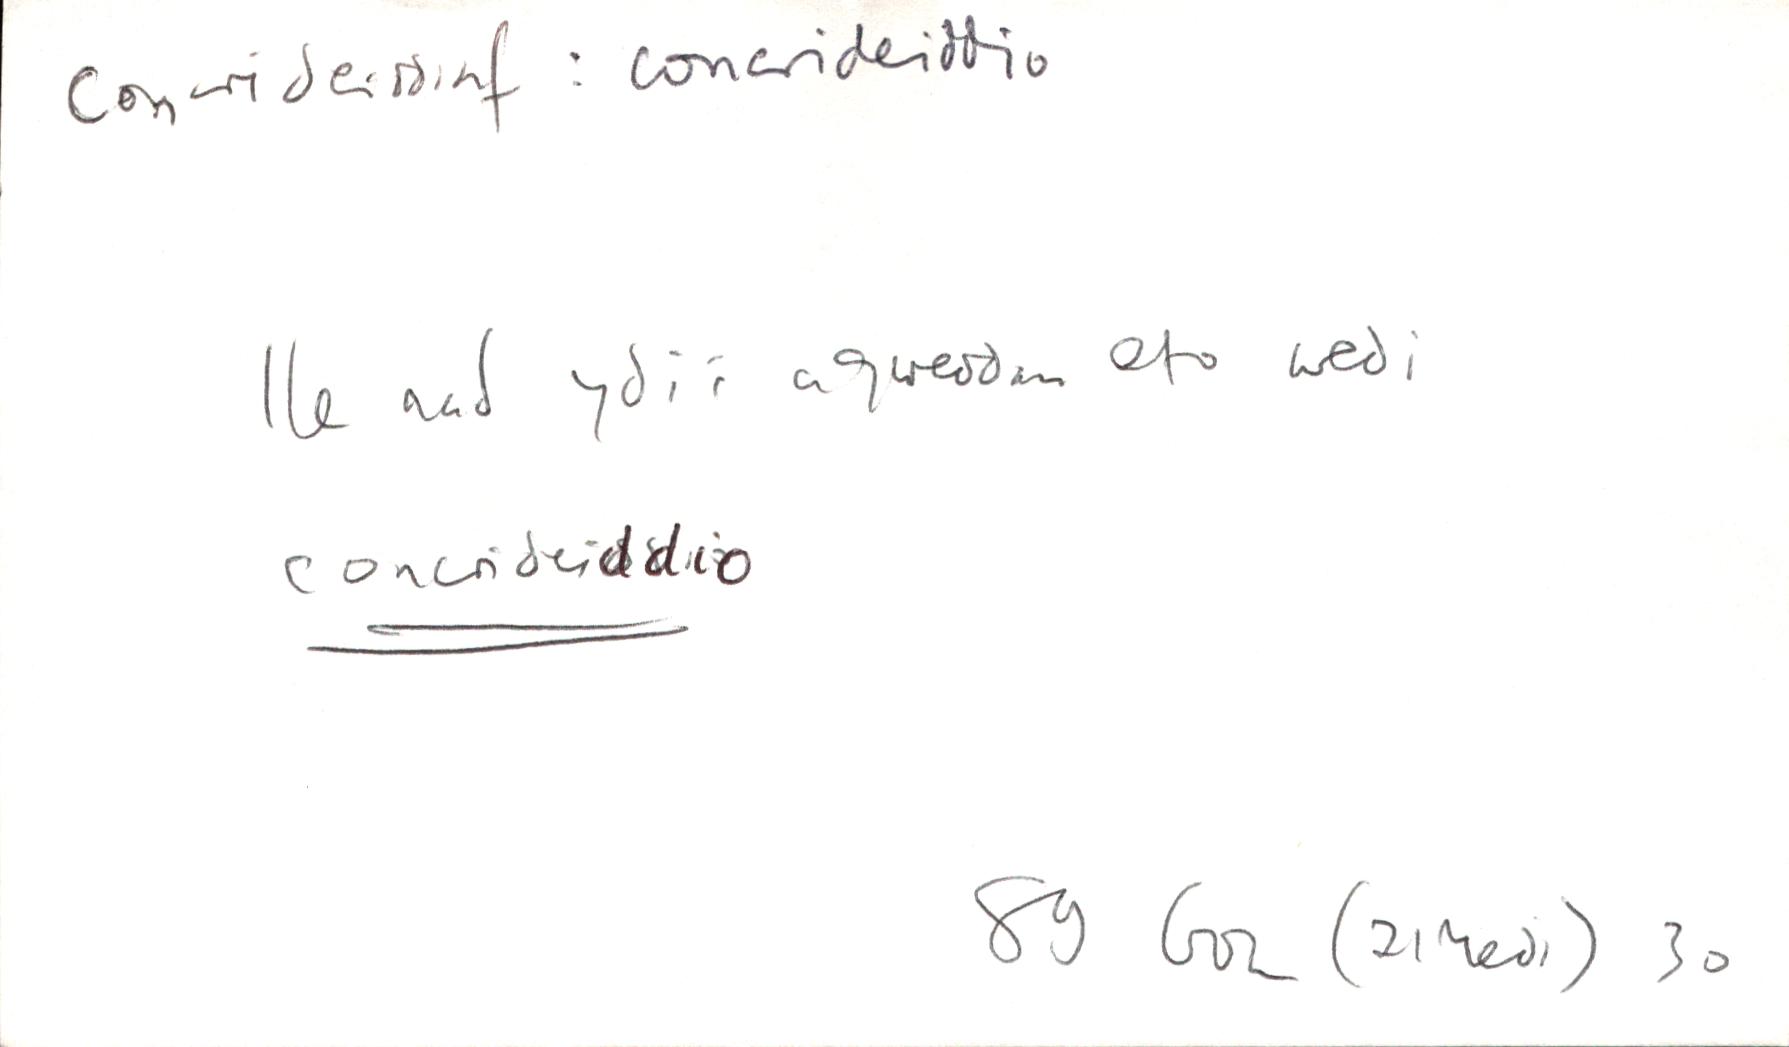 concrideiddiaf : concrideiddio
lle nad ydii agweddau eto wedi
concrideiddio
89 Gol (21 Medi) 30